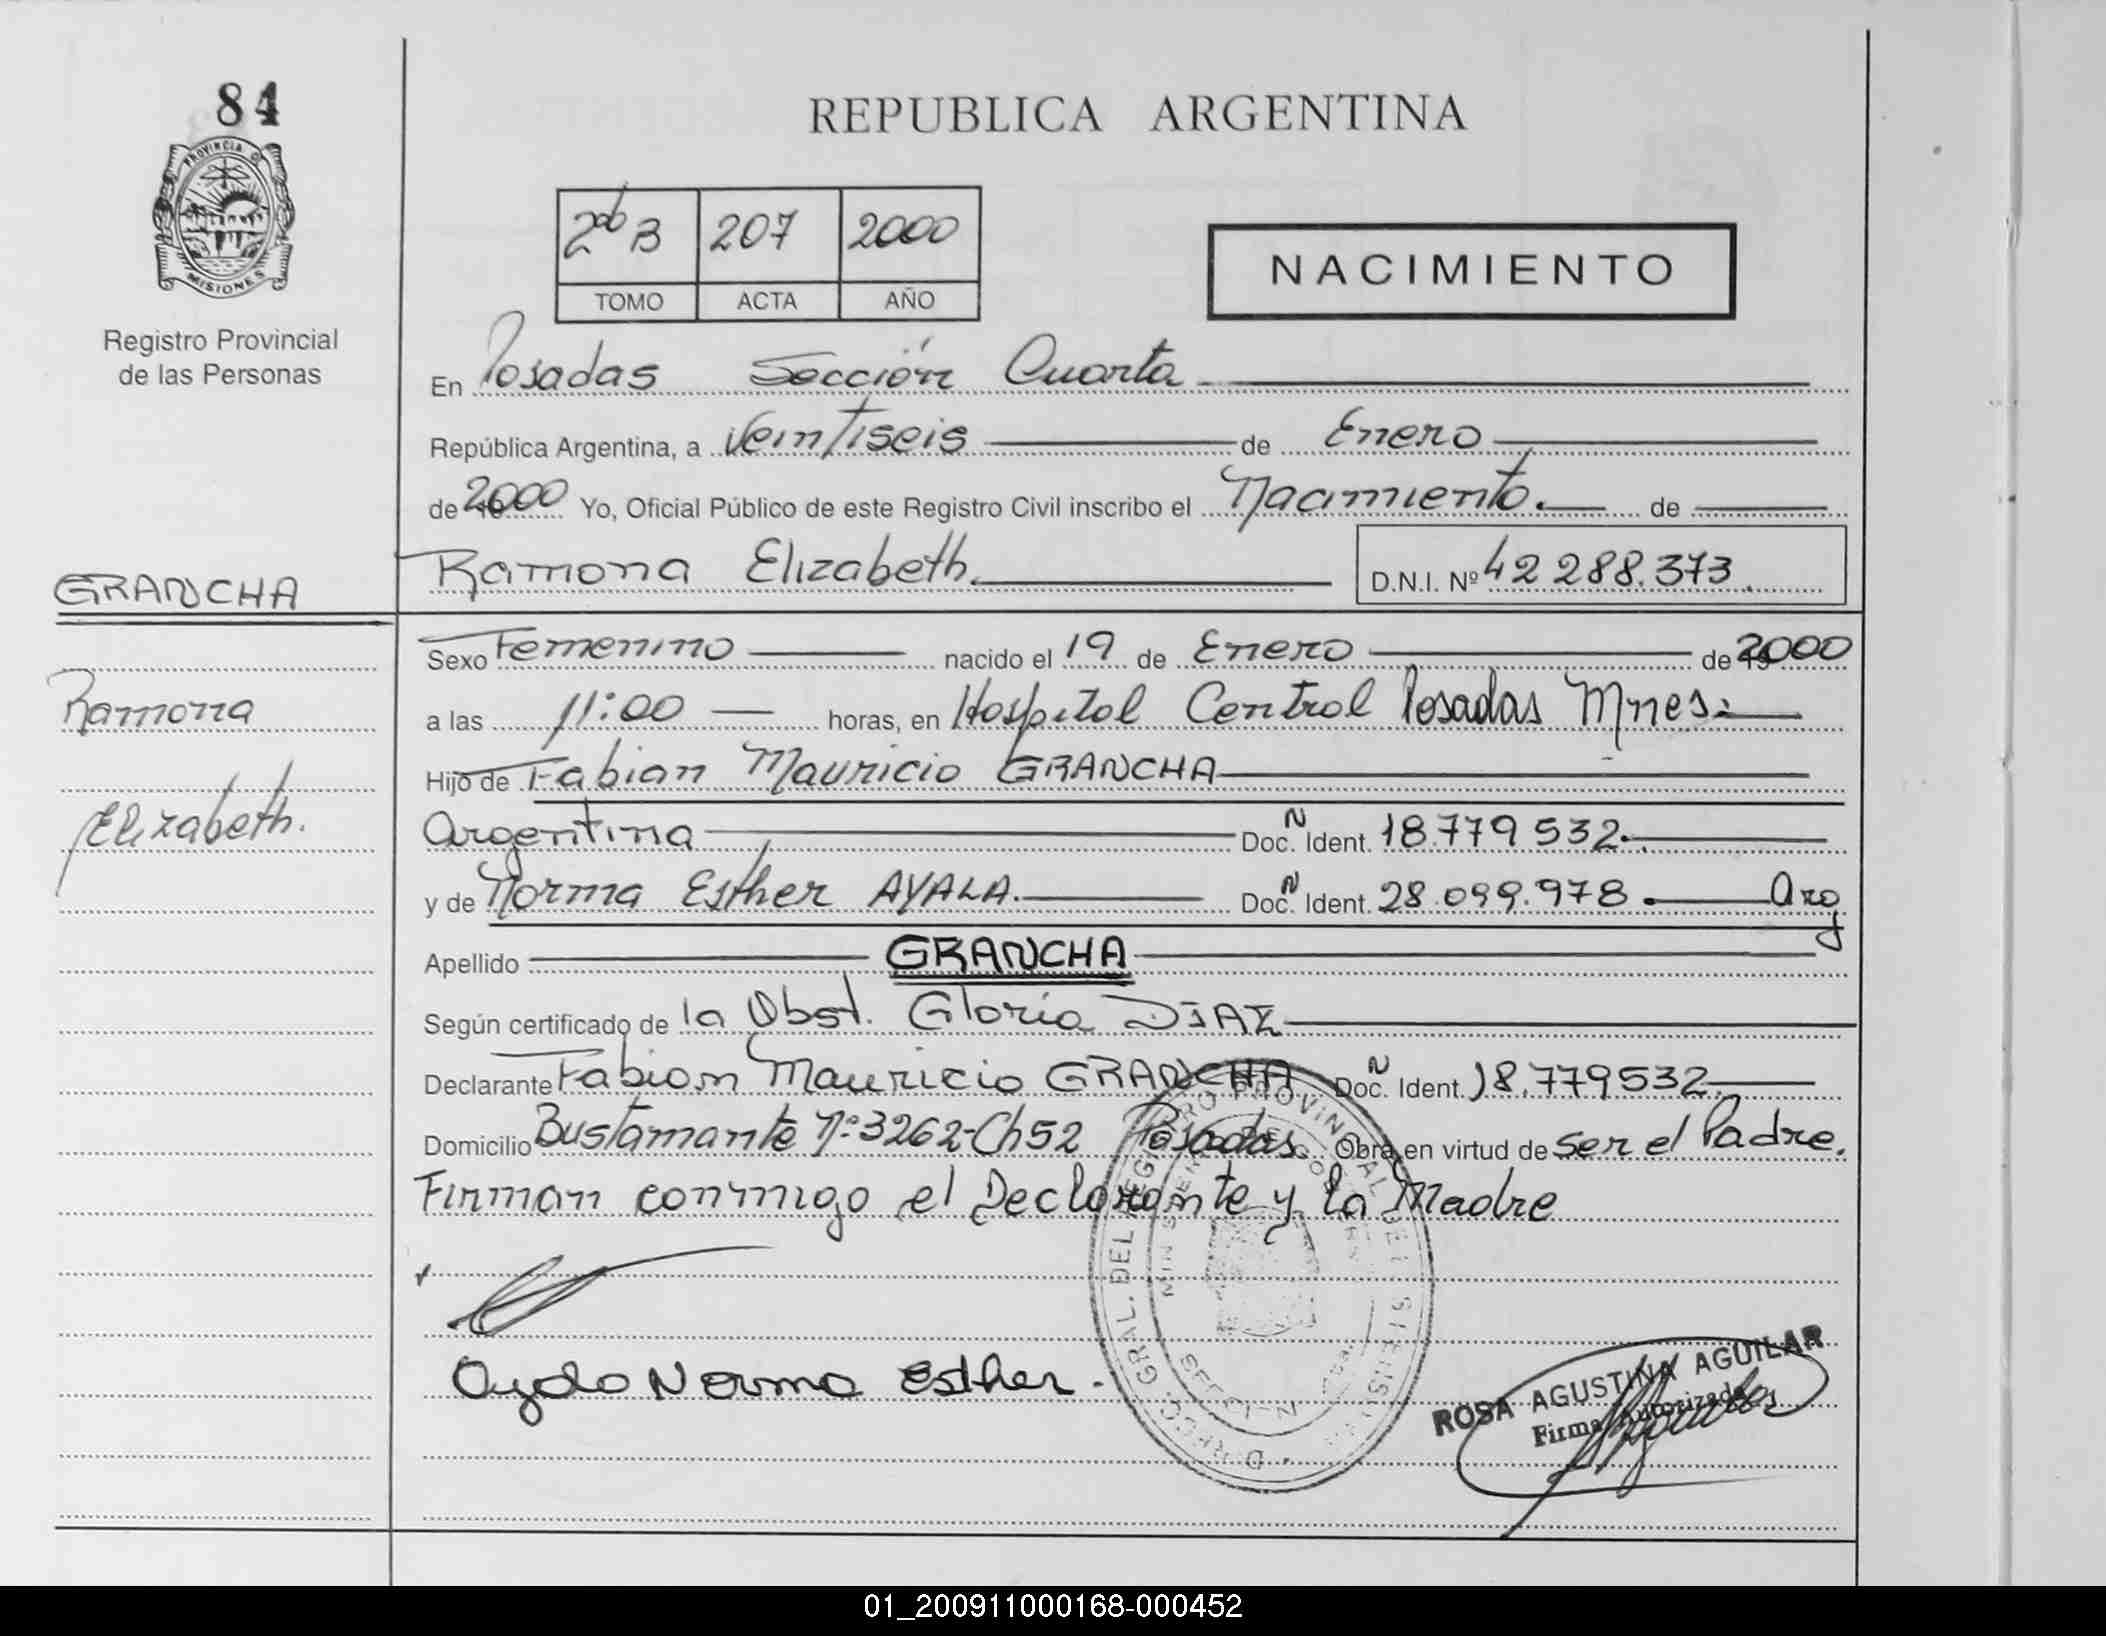 84
PROVINCIA D
MISIONES
Registro Provincial
de las Personas
REPUBLICA ARGENTINA
2do B 207 2000
TOMO ACTA AÑO
NACIMIENTO
En Posadas Sección Cuarta
República Argentina, a Veintiseis de Enero
de 2000 Yo, Oficial Público de este Registro Civil inscribo el Nacimiento. de
Ramona Elizabeth. D.N.I. Nº 42 288.373.
GRANCHA
Ramona
Elizabeth.
Sexo Femenino nacido el 19 de Enero de 2000
a las 11:00 horas, en Hospital Central Posadas Mnes.
Hijo de Fabian Mauricio GRANCHA
Argentina Doc. N Ident. 18.779 532.
y de Norma Esther AYALA. Doc. N Ident. 28.099.978. Arg
Apellido GRANCHA
Según certificado de la Obst. Gloria DIAZ
Declarante Fabian Mauricio GRANCHA Doc. N Ident. 18.779532.
Domicilio Bustamante Nº 3262-Ch52 Posadas. Obra en virtud de ser el Padre.
Firman conmigo el Declarante y la Madre
Ayala Norma Esther.
ROSA AGUSTINA AGUILAR
Firma Autorizada
01_200911000168-000452